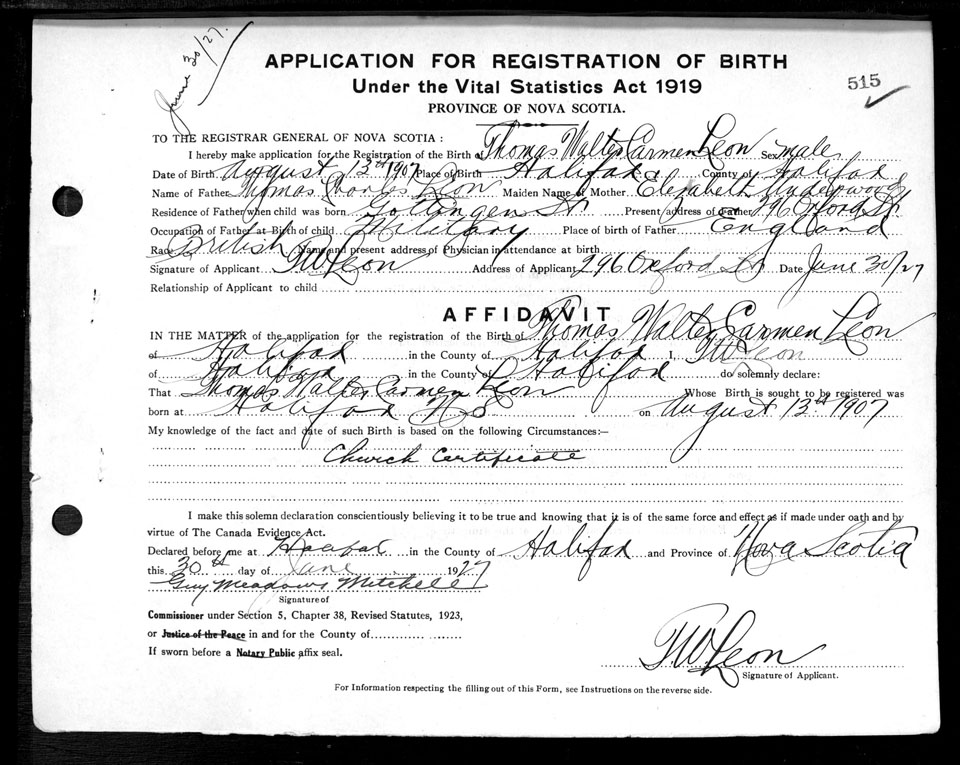 June 30/27.
APPLICATION FOR REGISTRATION OF BIRTH
Under the Vital Statistics Act 1919
515
PROVINCE OF NOVA SCOTIA.
TO THE REGISTRAR GENERAL OF NOVA SCOTIA :
I hereby make application for the Registration of the Birth of Thomas Walter Carmen Leon Sex male
Date of Birth August 13th 1907 Place of Birth Halifax County of Halifax
Name of Father Thomas Charles Leon Maiden Name of Mother Elizabeth Underwood
Residence of Father when child was born Gottingen St Present address of Father 296 Oxford St
Occupation of Father at Birth of child Military Place of birth of Father England
Race British Name and present address of Physician in attendance at birth
Signature of Applicant TW Leon Address of Applicant 296 Oxford St Date June 30/27
Relationship of Applicant to child
AFFIDAVIT
IN THE MATTER of the application for the registration of the Birth of Thomas Walter Carmen Leon
of Halifax in the County of Halifax I, TW Leon
of Halifax in the County of Halifax do solemnly declare:
That Thomas Walter Carmen Leon Whose Birth is sought to be registered was
born at Halifax N S on August 13th 1907
My knowledge of the fact and date of such Birth is based on the following Circumstances:—
Church Certificate
I make this solemn declaration conscientiously believing it to be true and knowing that it is of the same force and effect as if made under oath and by
virtue of The Canada Evidence Act.
Declared before me at Halifax in the County of Halifax and Province of Nova Scotia
this 30th day of June 1927
Guy Meadows Mitchell
Signature of
Commissioner under Section 5, Chapter 38, Revised Statutes, 1923,
or Justice of the Peace in and for the County of
If sworn before a Notary Public affix seal.
TW Leon
Signature of Applicant.
For Information respecting the filling out of this Form, see Instructions on the reverse side.